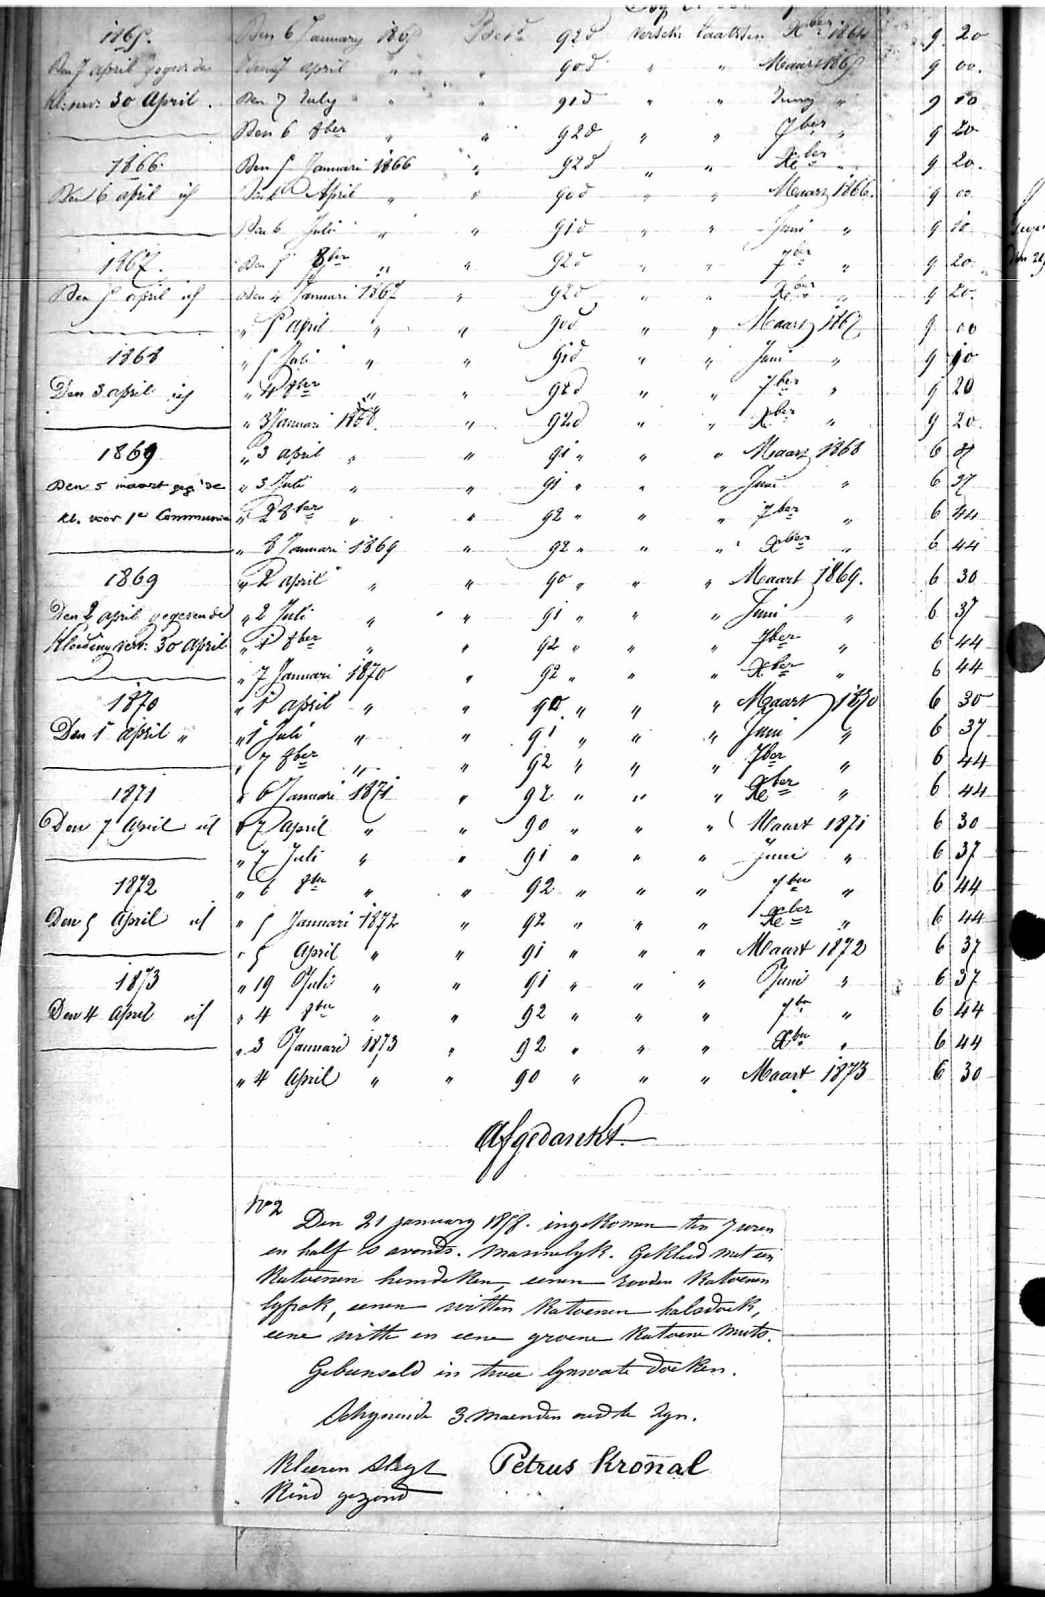 1865. Den 6 January 1865 Bet. 92d versch: laatsten Xber 1864 9 20
Den 7 april gegeven de Den 7 april " " 90d " " Maart 1865 9 00.
kl: ver: 30 April. Den 7 July " " 91d " " Juny " 9 10
Den 6 8ber " " 92d " " 7ber " 9 20
1866 Den 5 Januari 1866 " 92d " " Xber " 9 20.
Den 6 april id Den 6 April " " 90d " " Maart 1866. 9 00
Den 6 Juli " " 91d " " Juni " 9 10
1867. Den 5 8ber " " 92d " " 7ber " 9 20
Den 5 april id Den 4 Januari 1867 " 92d " " Xber " 9 20.
" 5 april " " 90d " " Maart 1867 9 00
1868 " 5 Juli " " 91d " " Juni " 9 10
Den 3 april id " 4 8ber " " 92d " " 7ber " 9 20
" 3 Januari 1868. " 92d " " Xber " 9 20
1869 " 3 april " " 91 " " " Maart 1868 6 37
Den 5 maart geg: de " 3 Juli " " 91 " " " Juni " 6 37
kl. voor 1e Communie " 2 8ber " " 92 " " " 7ber " 6 44
" 8 Januari 1869 " 92 " " " Xber " 6 44
1869 " 2 april " " 90 " " " Maart 1869. 6 30
Den 2 april gegevende " 2 Juli " " 91 " " " Juni " 6 37
kleeding ver: 30 April " 1 8ber " " 92 " " " 7ber " 6 44
" 7 Januari 1870 " 92 " " " Xber " 6 44
1870 " 1 april " " 90 " " " Maart 1870 6 30
Den 1 april " " 1 Juli " " 91 " " " Juni " 6 37
" 7 8ber " " 92 " " " 7ber " 6 44
1871 " 6 Januari 1871 " 92 " " " Xber " 6 44
Den 7 April id " 7 April " " 90 " " " Maart 1871 6 30
" 7 Juli " " 91 " " " Juni " 6 37
1872 " 6 8ber " " 92 " " " 7ber " 6 44
Den 5 April id " 5 Januari 1872 " 92 " " " Xber " 6 44
" 5 April " " 91 " " " Maart 1872 6 37
1873 " 19 Juli " " 91 " " " Juni " 6 37
Den 4 April id " 4 8ber " " 92 " " " 7ber " 6 44
" 3 Januari 1873 " 92 " " " Xber " 6 44
" 4 April " " 90 " " " Maart 1873 6 30
Afgedankt.
No 2
Den 21 january 1858. ingekomen ten 7 uren
en half s avonds. mannelyk. Gekleed met een
katoenen hemdeken, eenen rooden katoenen
lyfrok, eenen witten katoenen halsdoek,
eene witte en eene groene katoene muts.
Gebunseld in twee lynwate doeken.
Schynende 3 maenden oud te zyn.
Kleeren slegt Petrus Kronal
Kind gezond